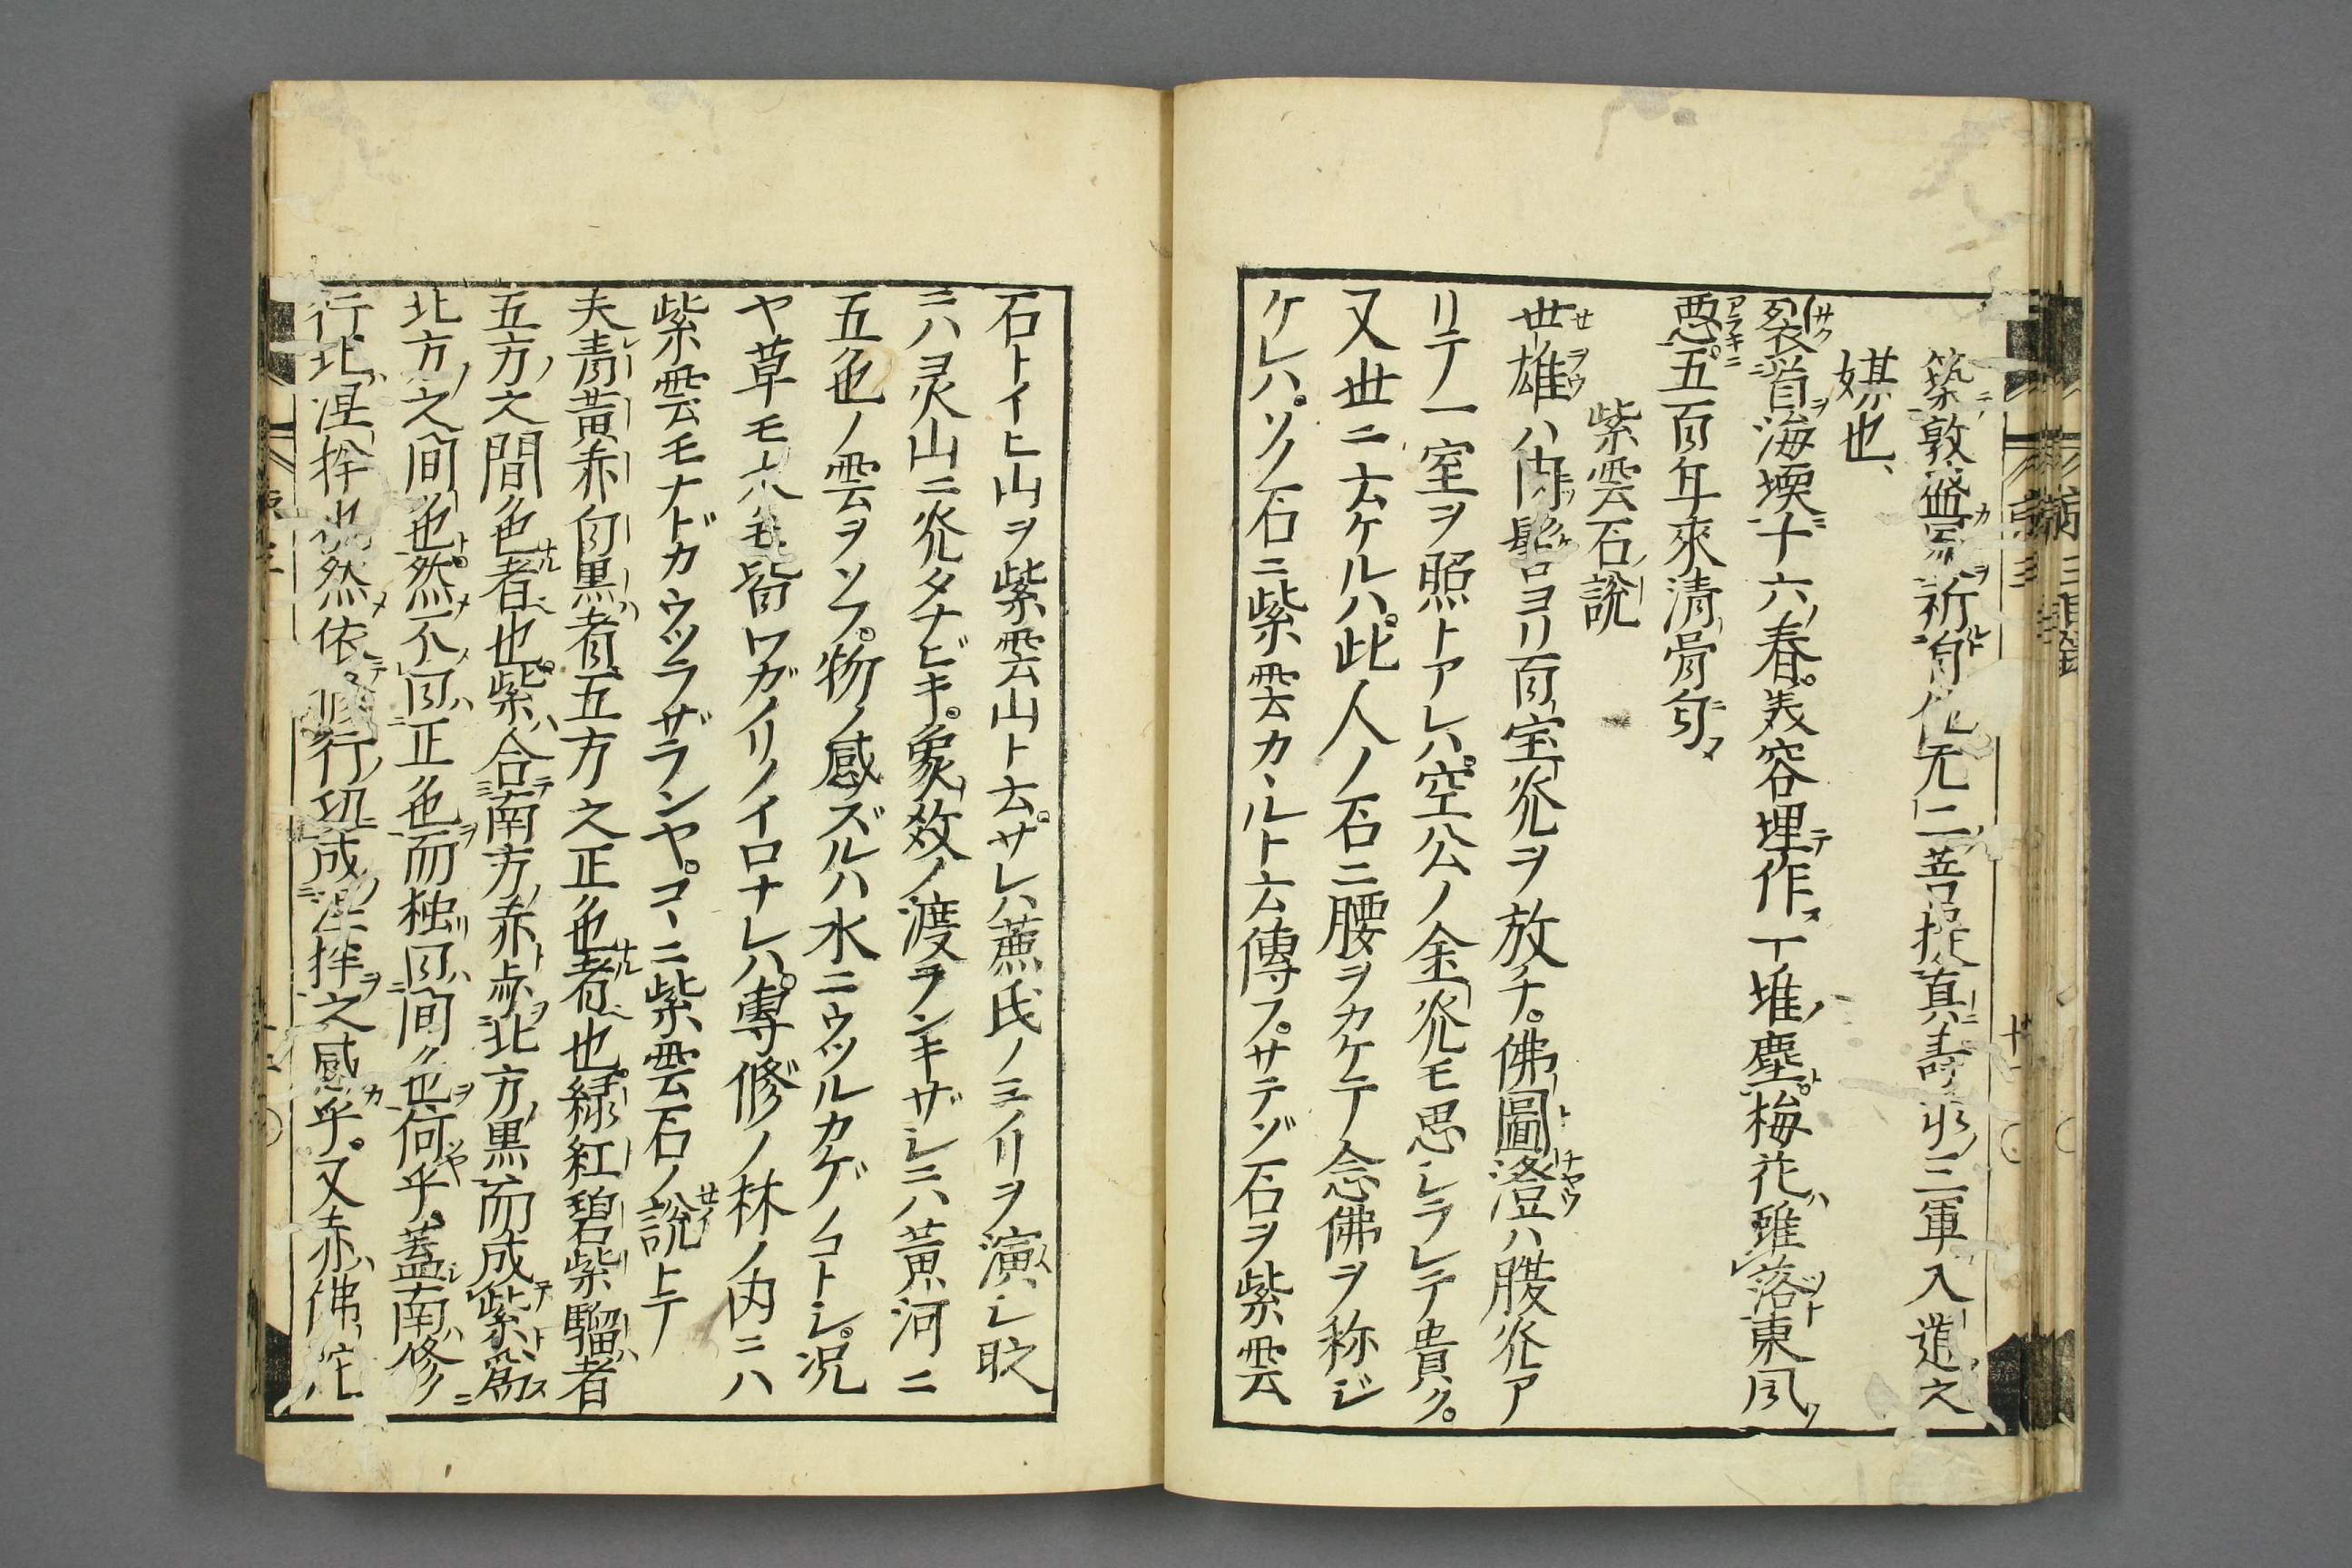 築敦盛冢祈冐化无二菩提真壽氷三軍入道之
媒也、
裂首海堧十六春。美容埋作一堆塵。梅花雖落東風
悪。五百年來清骨匂
紫雲石説
世雄ハ肉髻ヨリ百宝光ヲ放チ。佛圖澄ハ腹光ア
リテ一室ヲ照トアレハ。空公ノ金光モ思レラレテ貴ク。
又世ニ云ケルハ。此人ノ石ニ腰ヲカケテ念佛ヲ称ジ
ケレハ。ソノ石ニ紫雲カヽルト云傳フ。サテゾ石ヲ紫雲
石トイヒ山ヲ紫雲山ト云。サレハ蕉氏ノミノリヲ演シ砌
ニハ灵山ニ光タナビキ。象教ノ渡ランキザシニハ黄河ニ
五色ノ雲ヲソフ。物ノ感ズルハ水ニウツルカゲノコトシ。况
ヤ草モ木モ皆ワガノリノイロナレハ。專修ノ林ノ内ニハ
紫雲モナドカウツラザランヤ。コヽニ紫雲石ノ説上テ
夫青黄赤白黒者五方之正色者也。緑紅碧紫騮者
五方之間色者也。紫合南方赤與北方黒而成紫爲
北方之間色。然不曰正色而独曰間色何乎。蓋南修
行北涅槃也然依修行功成涅槃之感乎。又赤佛陀